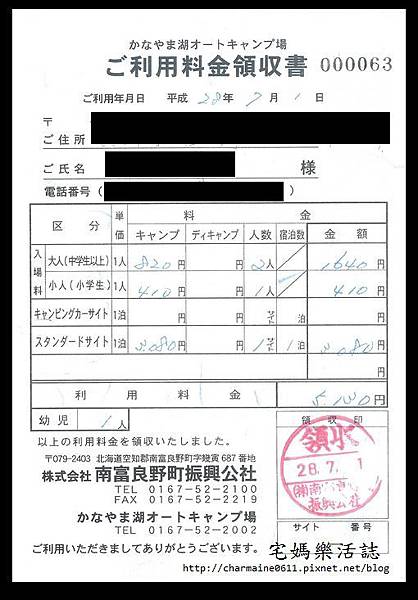 かなやま湖オートキャンプ場
ご利用料金領収書 000063
ご利用年月日 平成 28年 7月 1日
〒
ご住所
ご氏名 様
電話番号(
区分 単価 料金
キャンプ ディキャンプ 人数 宿泊数 金額
入場料 大人(中学生以上) 1人 820円 円 2人 1640円
小人(小学生) 1人 410円 円 1人 410円
キャンピングカーサイト 1泊 円 円 サイト 泊 円
スタンダードサイト 1泊 3080円 円 1サイト 1泊 3080円
利用料金 5130円
幼児 1人 領収印
以上の利用料金を領収いたしました。
〒079-2403 北海道空知郡南富良野町字幾寅687番地
株式会社 南富良野町振興公社
TEL 0167-52-2100
FAX 0167-52-2219
かなやま湖オートキャンプ場
TEL 0167-52-2002
ご利用いただきましてありがとうございます。
28.7.1
サイト 番号
宅媽樂活誌
http://charmaine0611.pixnet.net/blog